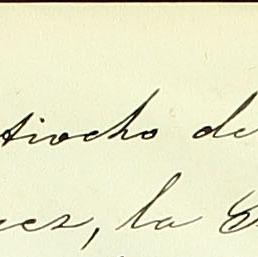 tiocho de
ez, la